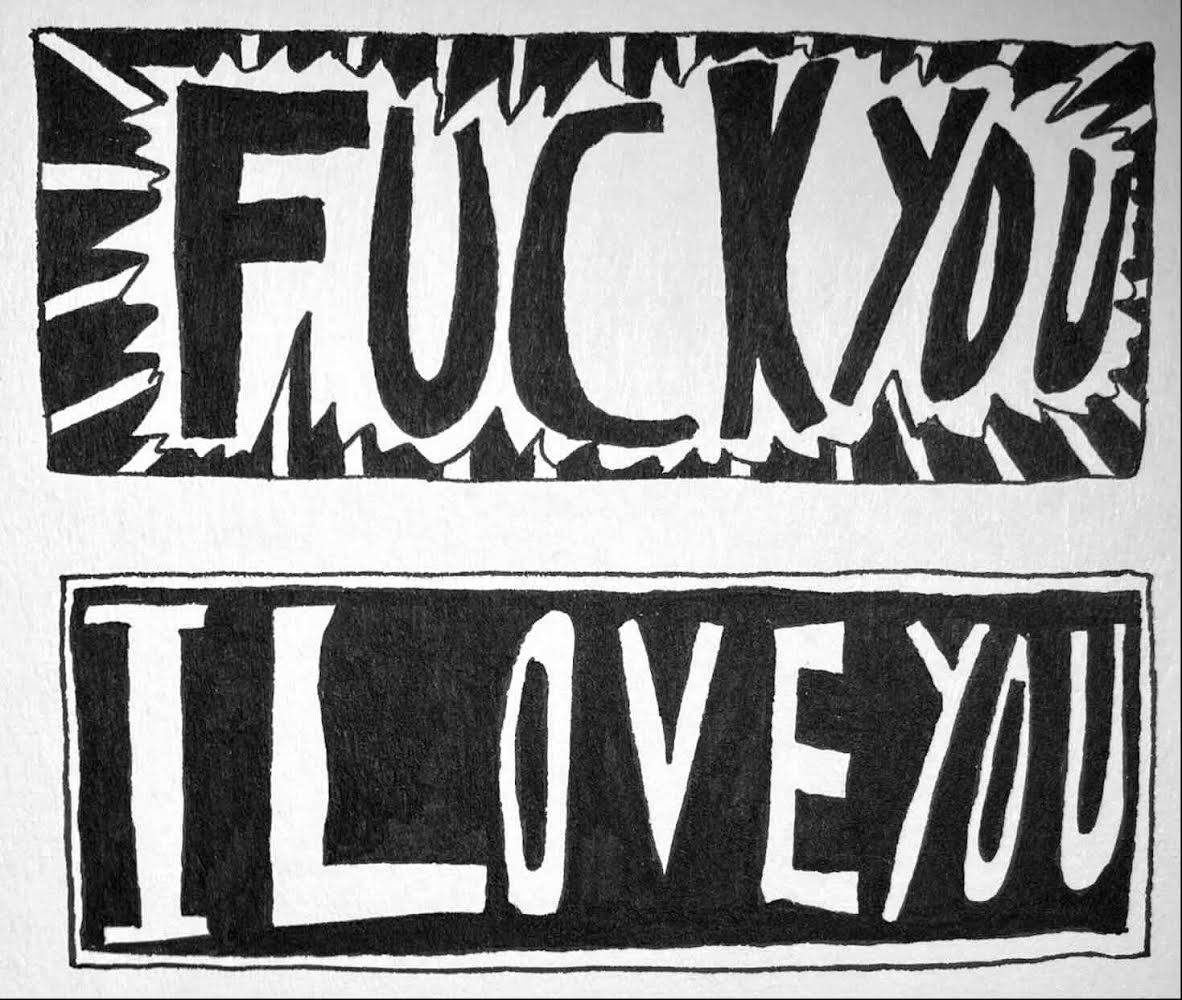 FUCK YOU
I LOVE YOU